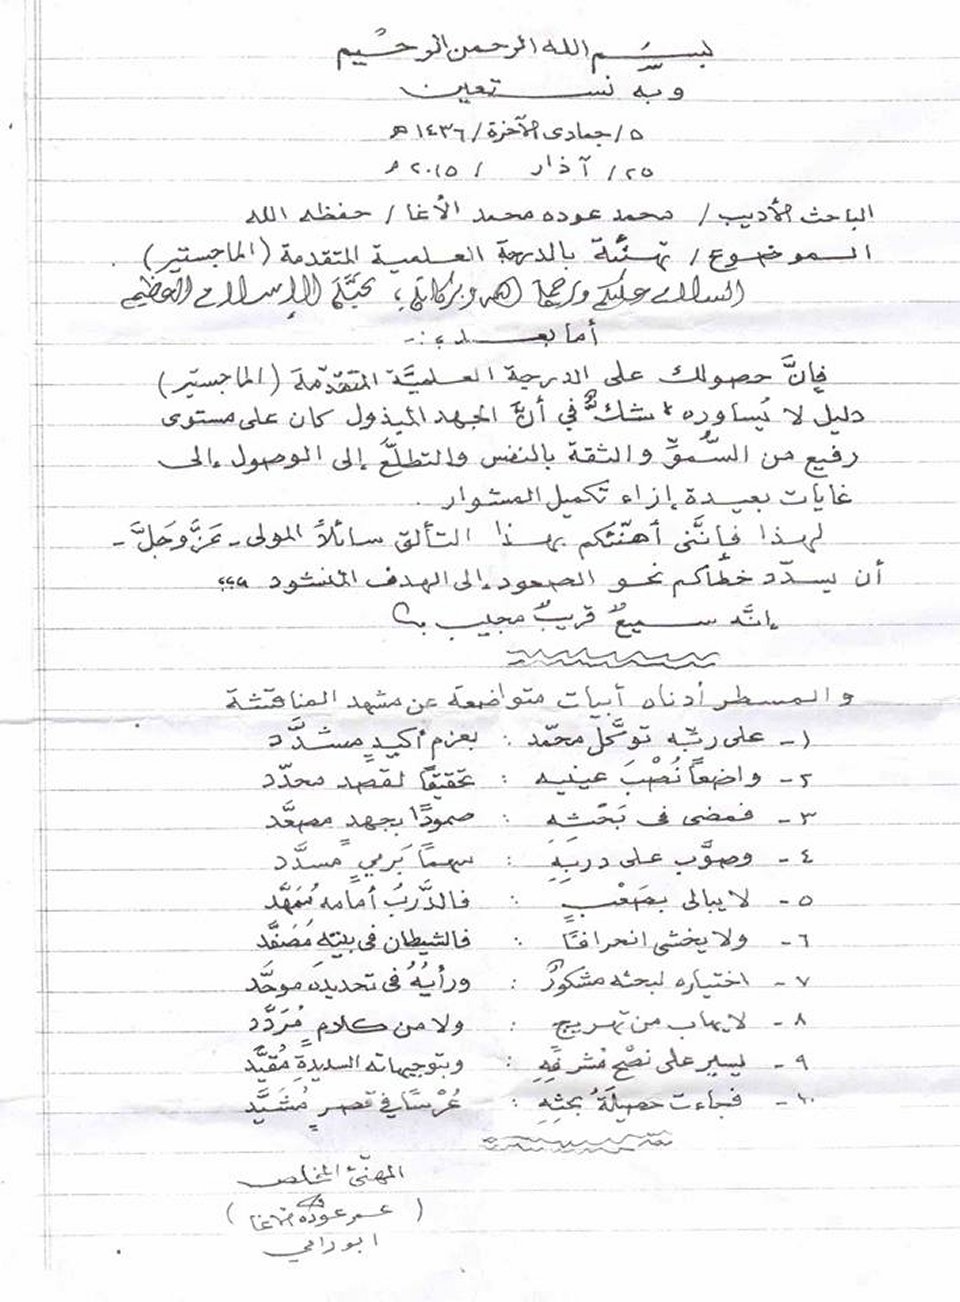 بسم الله الرحمن الرحيم
وبه نستعين
٥/جمادى الآخرة/١٤٣٦هـ
٢٥/ آذار / ٢٠١٥م
الباحث الأديب/ محمد عوده محمد الأغا/ حفظه الله
الموضوع/ تهنئة بالدرجة العلمية المتقدمة (الماجستير).
السلام عليكم ورحمة الله وبركاته، تحية الإسلام العظيم
أما بعد،:-
فإنَّ حصولك على الدرجة العلميَّة المتقدّمة (الماجستير)
دليل لا يُساوره شكٌّ في أنَّ الجهد المبذول كان على مستوى
رفيع من السُّموِّ والثقة بالنفس والتطلُّع إلى الوصول إلى
غايات بعيدة إزاء تكميل المشوار.
لهذا فإنَّنى أهنّئكم بهذا التألق سائلاً المولى - عزَّ وجلَّ -
أن يسدّد خطاكم نحو الصعود إلى الهدف المنشود ،،،،
إنَّه سميعٌ قريبٌ مجيب
والمسطر أدناه أبيات متواضعة عن مشهد المناقشة
١- على ربِّه توكَّل محمّد : بعزمٍ أكيدٍ مشدَّد
٢- واضعاً نُصْبَ عينيه : تحقيقًا لقصد محدّد
٣- فمضى فى بَحْثِهِ : صمودًا بجهدٍ مصعَّد
٤- وصوَّب على دربِهِ : سهمًا برميٍ مسدَّد
٥- لا يبالى بصَعْبٍ : فالدَّربُ أمامه مُمَهَّد
٦- ولا يخشى انحرافًا : فالشيطان فى بيتهِ مُصَفَّد
٧- اختياره لبحثه مشكورٌ : ورأيُهُ فى تحديده موحَّد
٨- لا يهاب من تهريج : ولا من كلامٍ مُرَدَّد
٩- يسير على نصْحِ مُشرفِهِ : وبتوجيهاته السديدةِ مُقيَّد
١٠- فجاءت حصيلةُ بحثِهِ : عُرْسًا في قصرٍ مُشَيَّد
المهنّئ المخلص
(عمر عوده الأغا)
ابو رامي